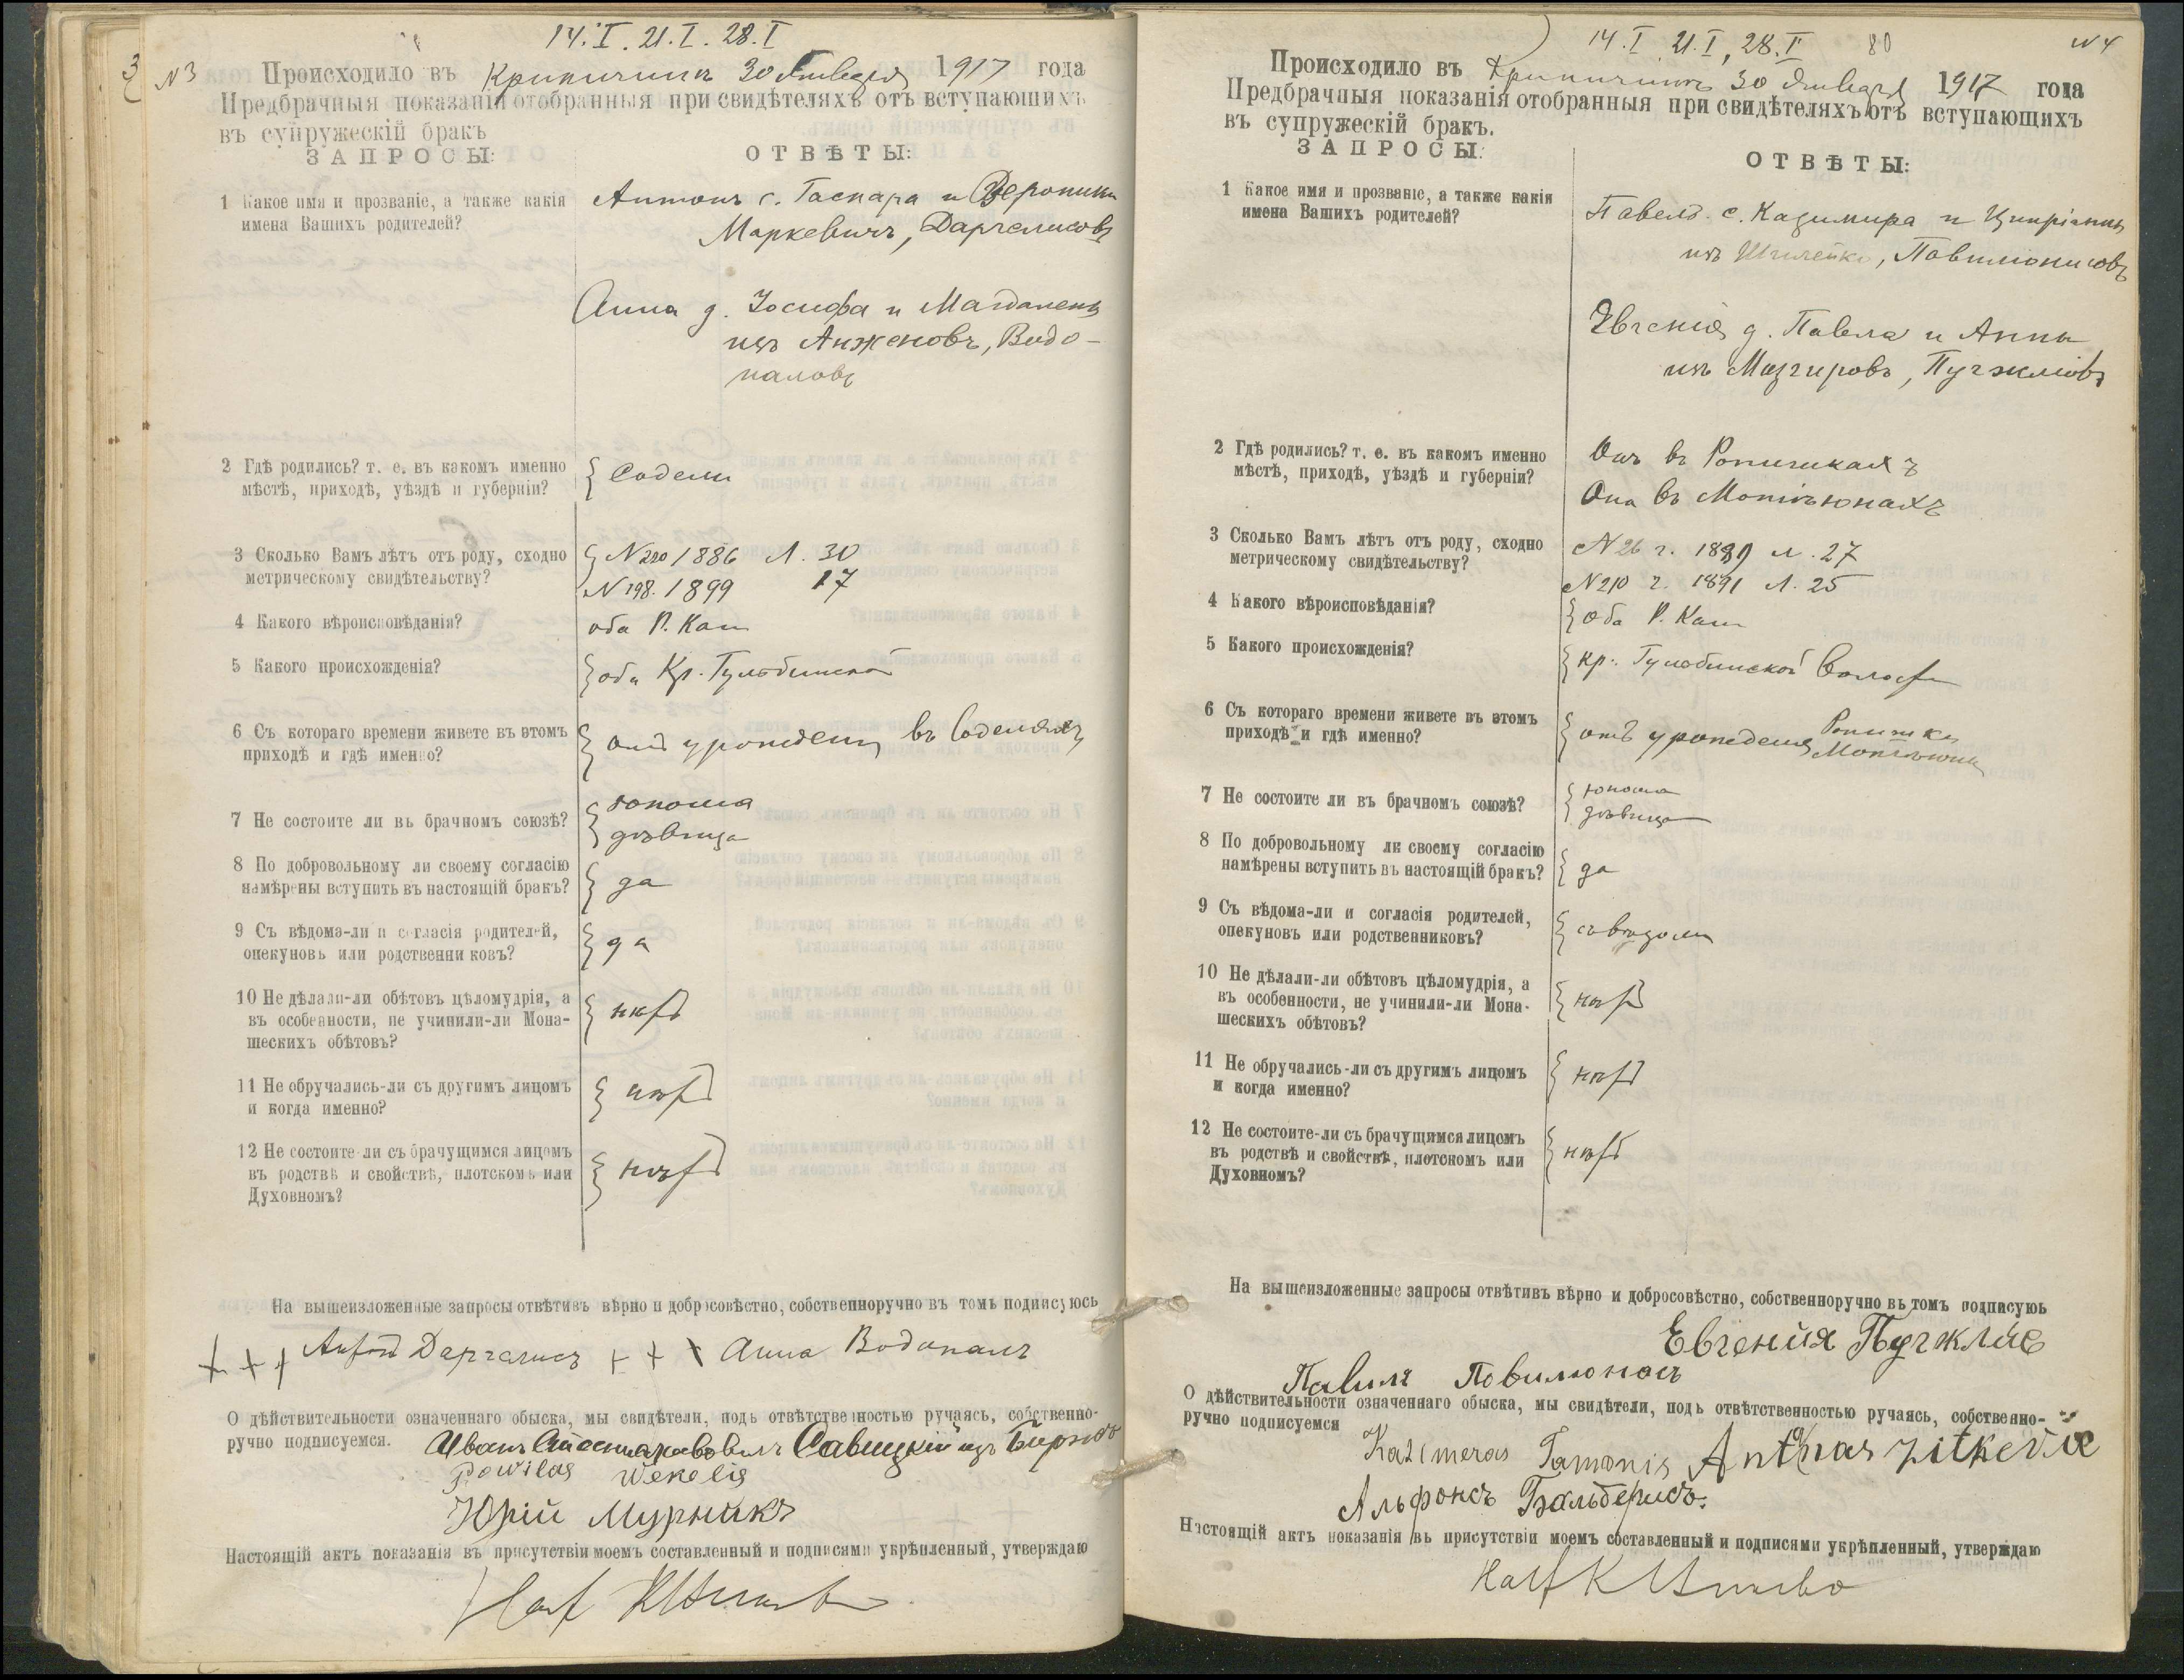 3
14. I. 21. I. 28. I
N 3 Происходило въ Крипичинъ 30 Января 1917 года
Предбрачныя показанія отобранныя при свидѣтеляхъ отъ вступающихъ
въ супружескій бракъ
ЗАПРОСЫ:
ОТВѢТЫ:
1 Какое имя и прозваніе, а также какія
имена Вашихъ родителей?
Антонъ с. Гаспара и Вероники
Маркевичъ, Даргелисовъ
Анна д. Іосифа и Магдалены
изъ Анженовъ, Водо-
паловъ
2 Гдѣ родились? т. е. въ какомъ именно
мѣстѣ, приходѣ, уѣздѣ и губерніи?
Содели
3 Сколько Вамъ лѣтъ отъ роду, сходно
метрическому свидѣтельству?
N 220 1886 Л. 30
N 198. 1899 17
4 Какого вѣроисповѣданія?
оба Р. Кат
5 Какого происхожденія?
оба Кр. Гулбинской
6 Съ котораго времени живете въ этомъ
приходѣ и гдѣ именно?
отъ урожденія въ Соделяхъ
7 Не состоите ли въ брачномъ союзѣ?
юноша
дѣвица
8 По добровольному ли своему согласію
намѣрены вступить въ настоящій бракъ?
да
9 Съ вѣдома-ли и согласія родителей,
опекуновъ или родственниковъ?
да
10 Не дѣлали-ли обѣтовъ цѣломудрія, а
въ особенности, не учинили-ли Мона-
шескихъ обѣтовъ?
нѣтъ
11 Не обручались-ли съ другимъ лицомъ
и когда именно?
нѣтъ
12 Не состоите-ли съ брачущимся лицомъ
въ родствѣ и свойствѣ, плотскомъ или
Духовномъ?
нѣтъ
На вышеизложенные запросы отвѣтивъ вѣрно и добросовѣстно, собственноручно въ томъ подписуюсь
+ + + Антонъ Даргелисъ + + + Анна Водопалъ
О дѣйствительности означеннаго обыска, мы свидѣтели, подъ отвѣтственностью ручаясь, собственно-
ручно подписуемся.
Иванъ Савицкій изъ
Powilas Wekelis
Юрій Мурникъ
Настоящій актъ показанія въ присутствіи моемъ составленный и подписями укрѣпленный, утверждаю
14. I 21. I, 28. I
80
N 4
Происходило въ Крипичинъ 30 Января 1917 года
Предбрачныя показанія отобранныя при свидѣтеляхъ отъ вступающихъ
въ супружескій бракъ.
ЗАПРОСЫ:
ОТВѢТЫ:
1 Какое имя и прозваніе, а также какія
имена Вашихъ родителей?
Павелъ с. Казимира и Ципріаны
изъ Шилейко, Повилионисовъ
Евгенія д. Павла и Анны
изъ Мазгировъ, Пугжлювъ
2 Гдѣ родились? т. е. въ какомъ именно
мѣстѣ, приходѣ, уѣздѣ и губерніи?
Онъ въ Ропишкахъ
Она въ Монтъюнахъ
3 Сколько Вамъ лѣтъ отъ роду, сходно
метрическому свидѣтельству?
N 26 г. 1889 л. 27
N 210 г. 1891 л. 25
4 Какого вѣроисповѣданія?
оба Р. Кат
5 Какого происхожденія?
кр. Гулбинской Волости
6 Съ котораго времени живете въ этомъ
приходѣ и гдѣ именно?
отъ урожденія Ропишки
Монтъюны
7 Не состоите ли въ брачномъ союзѣ?
юноша
дѣвица
8 По добровольному ли своему согласію
намѣрены вступить въ настоящій бракъ?
да
9 Съ вѣдома-ли и согласія родителей,
опекуновъ или родственниковъ?
съ вѣдома
10 Не дѣлали-ли обѣтовъ цѣломудрія, а
въ особенности, не учинили-ли Мона-
шескихъ обѣтовъ?
нѣтъ
11 Не обручались-ли съ другимъ лицомъ
и когда именно?
нѣтъ
12 Не состоите-ли съ брачущимся лицомъ
въ родствѣ и свойствѣ, плотскомъ или
Духовномъ?
нѣтъ
На вышеизложенные запросы отвѣтивъ вѣрно и добросовѣстно, собственноручно въ томъ подписуюь
Евгенія Пугжлис
Павилъ Повилюнасъ
О дѣйствительности означеннаго обыска, мы свидѣтели, подъ отвѣтственностью ручаясь, собственно-
ручно подписуемся
Kazimeras Tamonis Antanas Zitkevic
Альфонсъ Бальберисъ.
Настоящій актъ показанія въ присутствіи моемъ составленный и подписями укрѣпленный, утверждаю